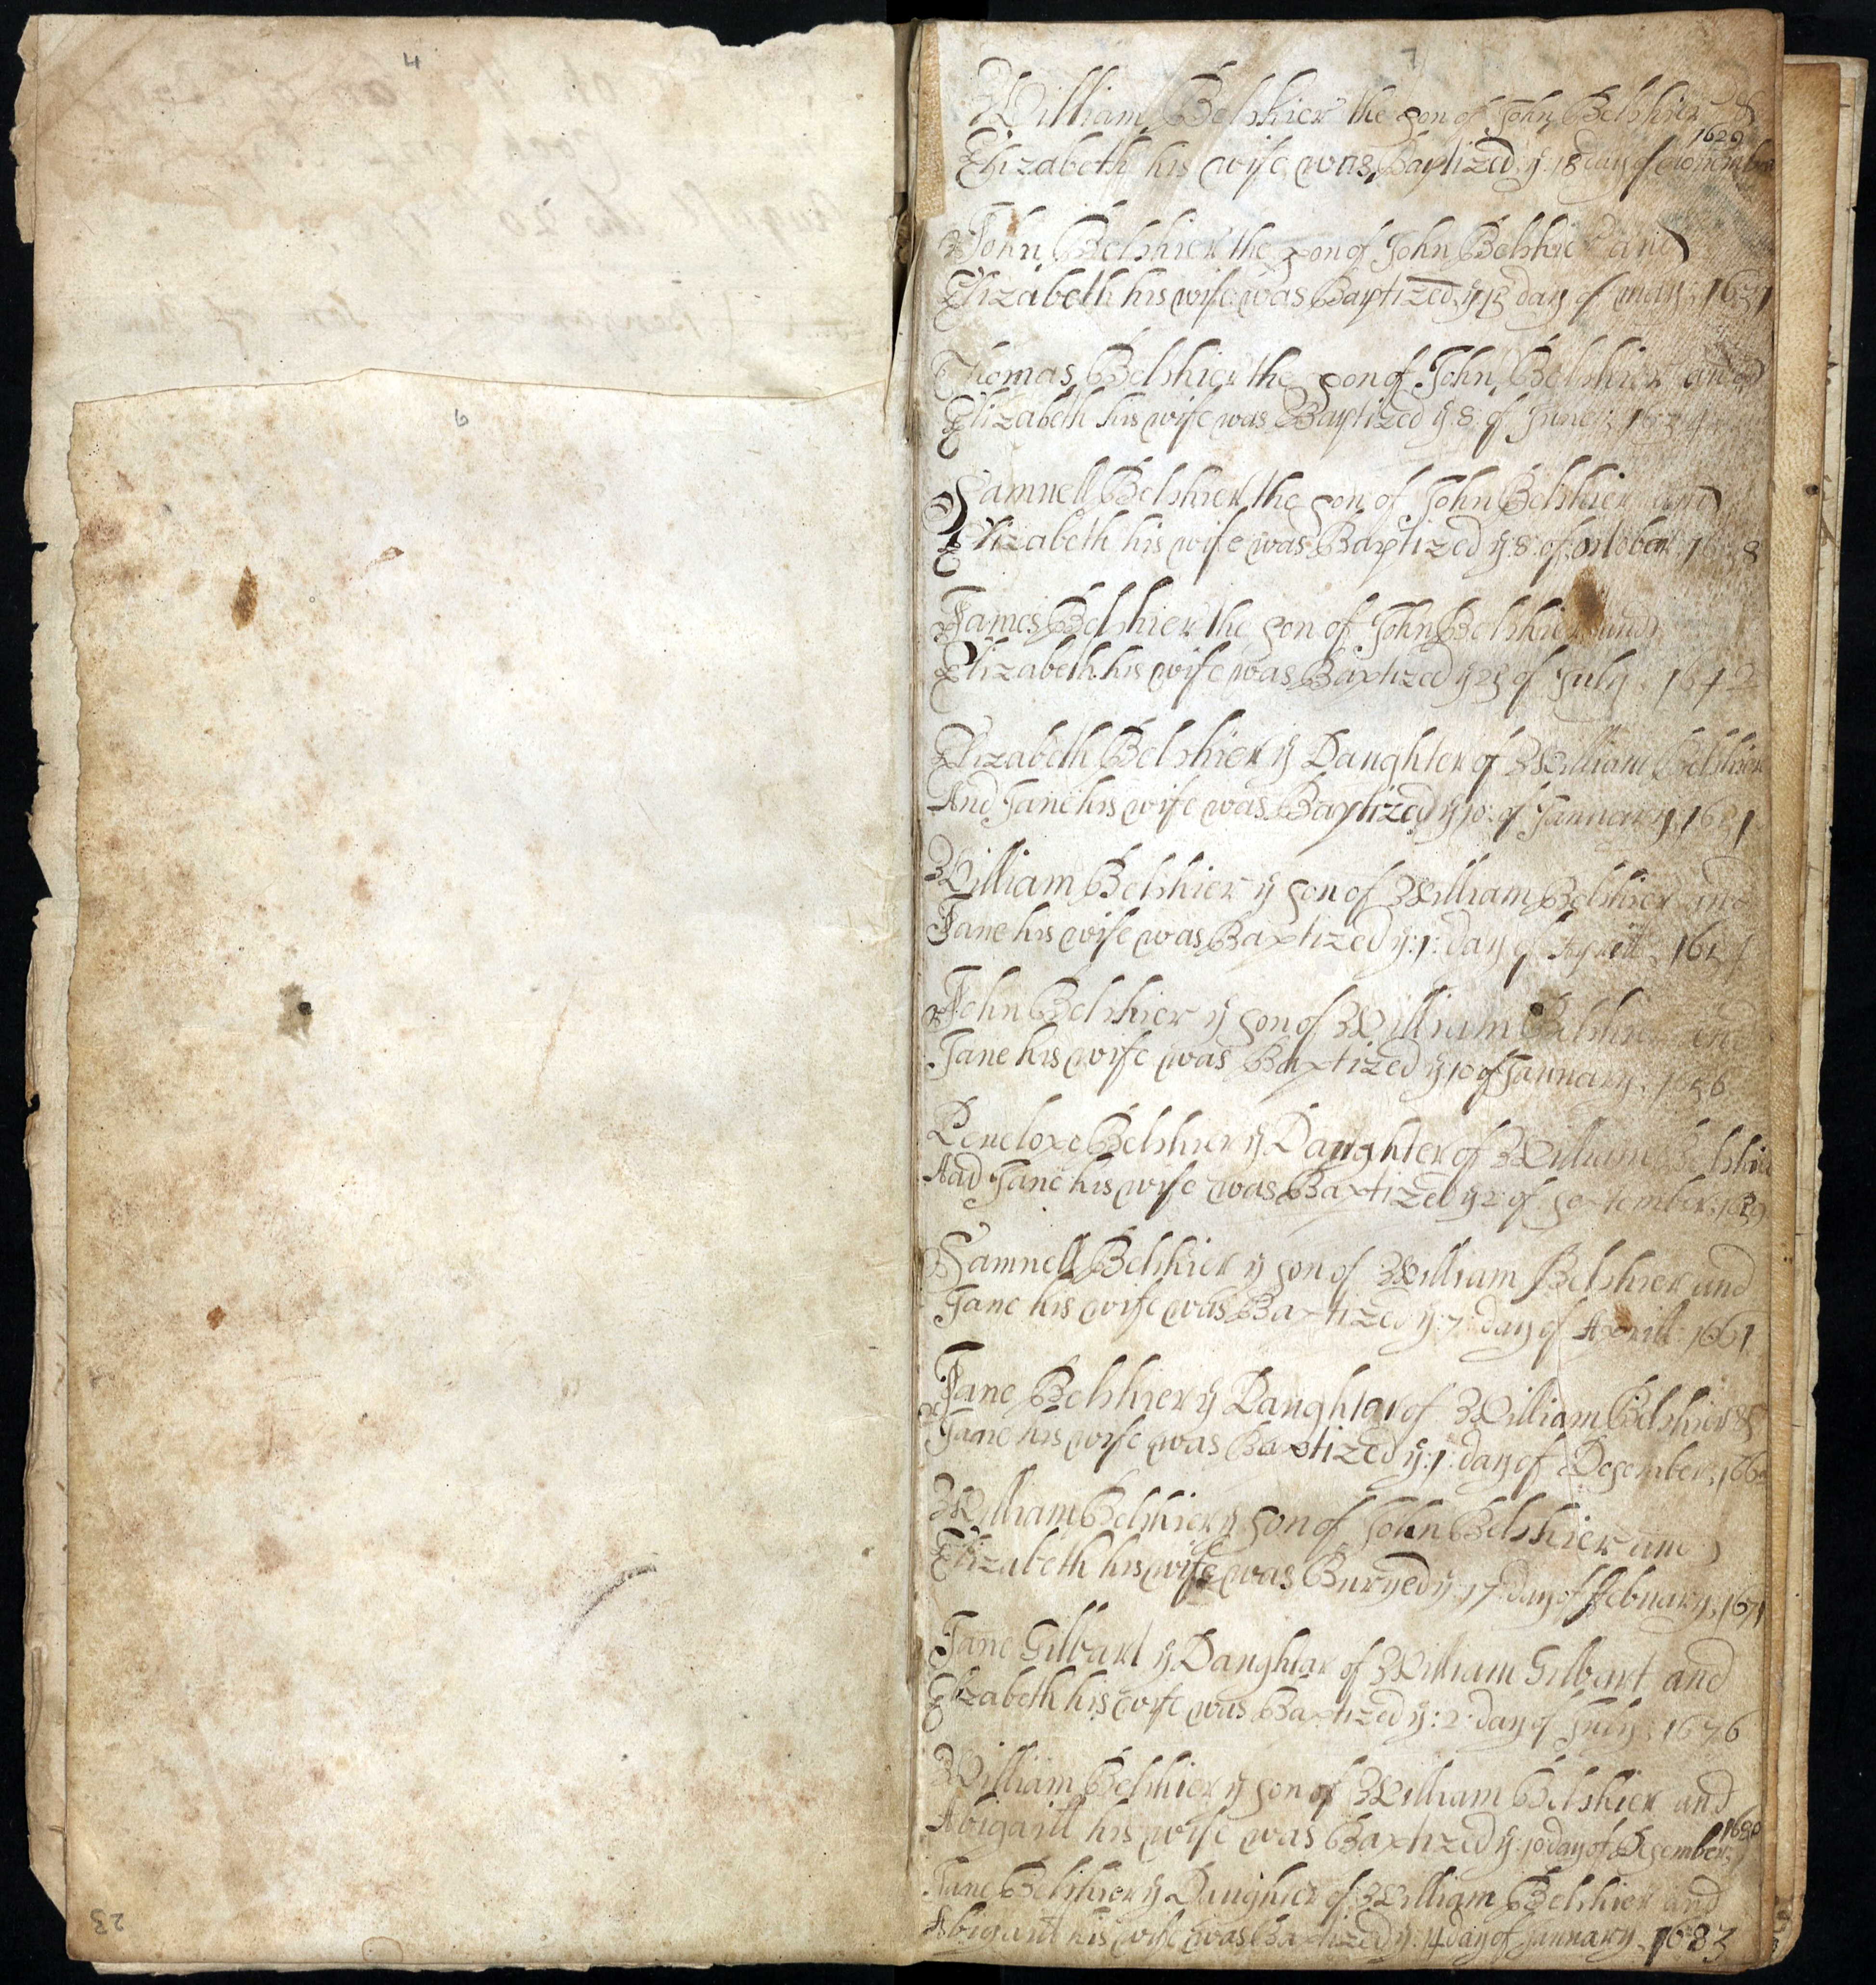 4
6
23
7
William Belshier the son of John Belshier &
1629
Elizabeth his wife was Baptized ÿ 18 day of November
John Belshier the son of John Belshier and
Elizabeth his wife was Baptized ÿ day of may 1631
Thomas Belshier the son of John Belshier and
Elizabeth his wife was Baptized ÿ 8 of June 1634
Samuell Belshier the son of John Belshier and
Elizabeth his wife was Baptized ÿ 8 of october 1638
James Belshier the son of John Belshier and
Elizabeth his wife was Baptized ÿ 25 of July 1642
Elizabeth Belshier ÿ Daughter of William Belshier
And Jane his wife was Baptized ÿ 10 of January 1651
William Belshier ÿ son of William Belshier and
Jane his wife was Baptized ÿ :1: day of Aprill
John Belshier ÿ son of William Belshier and
Jane his wife was Baptized ÿ 10 of January 1656
Penelope Belshier ÿ Daughter of William Belshier
And Jane his wife was Baptized ÿ 2 of september 1659
Samuell Belshier ÿ son of William Belshier and
Jane his wife was Baptized ÿ :7: day of Aprill 1661
Jane Belshier ÿ Daughtar of William Belshier &
Jane his wife was Baptized ÿ :1: day of Desember
William Belshier ÿ son of John Belshier and
Elizabeth his wife was Buryed ÿ 17 day of ffebuary 1671
Jane Gilbart ÿ Daughtar of William Gilbart and
Elizabeth his wife was Baptized ÿ :2: day of July 1676
William Belshier ÿ son of William Belshier and
Abigaill his wife was Baptized ÿ 10 day of Desember
1680
Jane Belshier ÿ Daughter of William Belshier and
Abigaill his wife was Baptized ÿ 4 day of January 1683